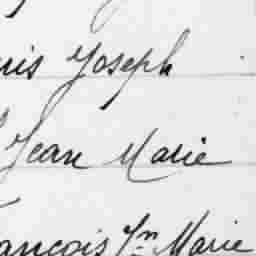 uis Joseph
Jean Marie
ançois Jn Marie